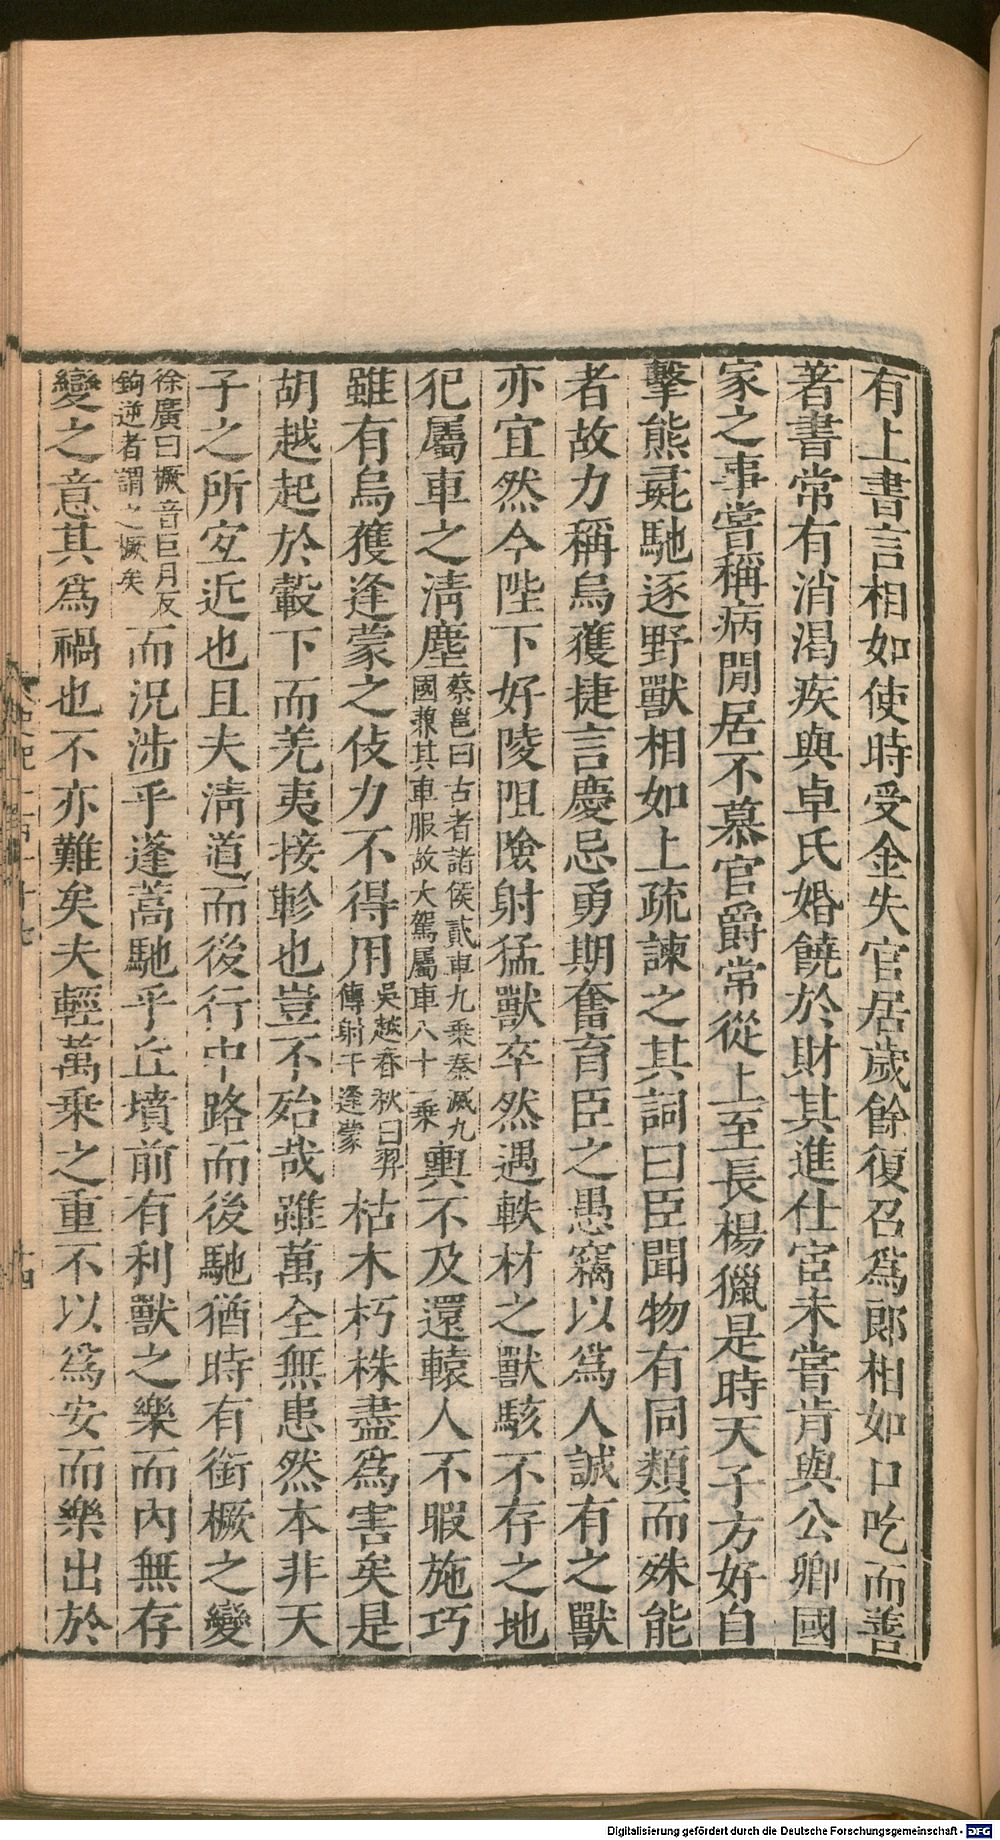 有上書言相如使時受金失官居歲餘復召爲郎相如口吃而善
著書常有消渴疾與卓氏婚饒於財其進仕宦未嘗肯與公卿國
家之事嘗稱病閒居不慕官爵常從上至長楊獵是時天子方好自
擊熊彘馳逐野獸相如上疏諫之其詞曰臣聞物有同類而殊能
者故力稱烏獲捷言慶忌勇期奮育臣之愚竊以爲人誠有之獸
亦宜然今陛下好陵阻險射猛獸卒然遇軼材之獸駭不存之地
犯屬車之清塵蔡邕曰古者諸侯貳車九乘秦滅九國兼其車服故大駕屬車八十一乘輿不及還轅人不暇施巧
雖有烏獲逢蒙之伎力不得用吳越春秋曰羿傳射于逢蒙枯木朽株盡爲害矣是
胡越起於轂下而羌夷接軫也豈不殆哉雖萬全無患然本非天
子之所宜近也且夫清道而後行中路而後馳猶時有銜橛之變
徐廣曰橛音巨月反鉤逆者謂之橛矣而況涉乎蓬蒿馳乎丘墳前有利獸之樂而內無存
變之意其爲禍也不亦難矣夫輕萬乘之重不以爲安而樂出於
十四
Digitalisierung gefördert durch die Deutsche Forschungsgemeinschaft - DFG